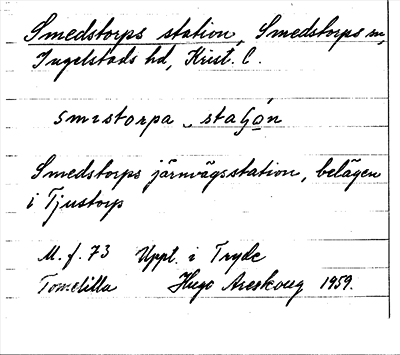 Smedstorps station, Smedstorps sn,
Ingelstads hd, Krist. C.
smistorpa staʃón
Smedstorps järnvägsstation, belägen
i Tjustorp
M. f. 73 Uppt. i Tryde
Tomelilla Hugo Areskoug 1959.